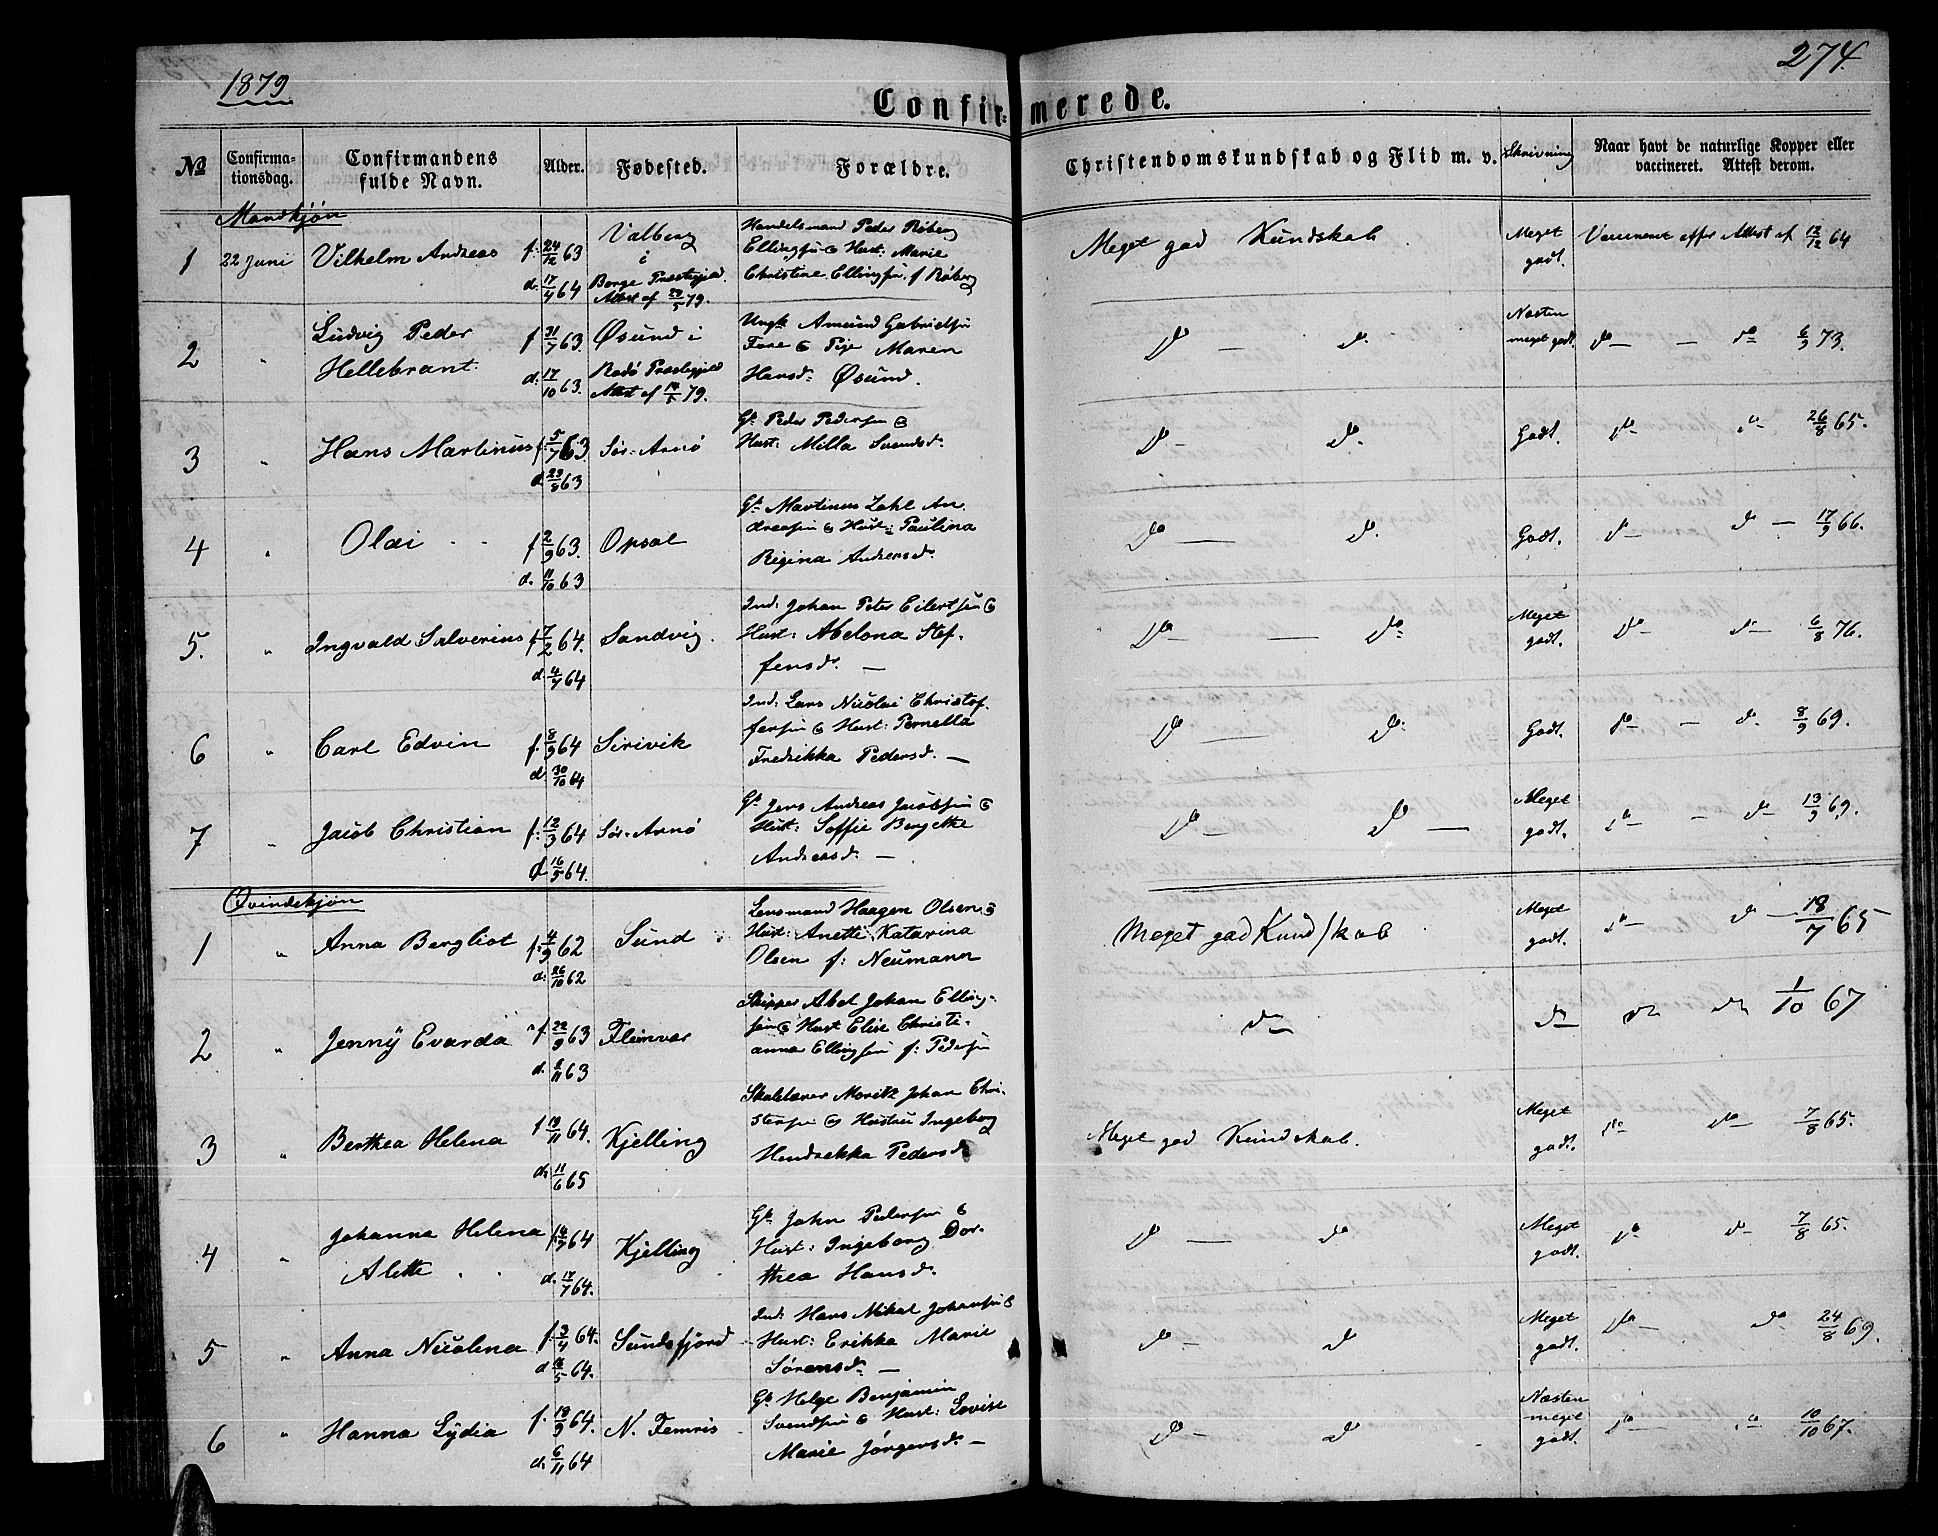 1879
274.
Confirmerede.
No
Confirmationsdag.
Confirmandens fulde Navn.
Alder.
Fødested.
Forældre.
Christendomskundskab og Flid m. v.
Skrivning
Naar havt de naturlige Kopper eller vaccineret. Attest derom.
Mandkjøn
1 22 Juni Vilhelm Andreas f. 24/12 63 d. 17/4 64
Valberg i Borge Præstegjeld. Attest af 29/5 79.
Handelsmand Peder Røberg
Ellingsen & Hust: Marie
Christine Ellingsen f Røberg
Meget god Kundskab
Meget godt.
Vaccineret efter Attest af 12/12 64
2 " Ludvig Peder Hellebrant. f 31/7 63. d. 17/10 63.
Øsund i Rødø Præstegjeld Attest af 79.
Ungk. Amund Gabrielsen
Fore & Pige Maren
Hansd. Øsund.
Do — Do
Næsten meget godt.
Do — Do 6/9 73.
3 " Hans Martinus f. 5/7 63 d 23/8 63
Sør-Arnø
Gb. Peder Pedersen &
Hust: Milla Svendsd.
Do — Do
Godt.
Do Do 26/8 65.
4 " Olai f 2/9 63. d. 11/10 63
Opsal
Gb. Martinus Zahl An-
dreasen & Hust: Paulina
Regina Andersd.
Do — Do
Godt.
Do Do — 17/9 66.
5. " Ingvald Salverius f 7/2 64. d. 4/7 64
Sandvig.
Ind: Johan Peter Eilertsen &
Hust: Abelona Stef-
fensd. —
Do — Do
Meget godt.
Do Do — 6/8 76.
6 " Carl Edvin f. 8/9 64 d. 30/10 64
Sirivik
Ind: Lars Nicolai Christof-
fersen & Hust: Pernella
Fredrikka Pedersd. —
Do — Do
Godt.
Do — Do 8/9 69.
7 " Jacob Christian f. 12/3 64 d 16/5 64.
Sør-Arnø
Gb. Jens Andreas Jacobsen &
Hust: Soffie Bergette
Andreasd. —
Do — Do —
Meget godt.
Do — Do 13/9 69.
Qvindekjøn
1 " Anna Bergliot f. 4/9 62 d. 26/10 62
Sund
Lensmand Haagen Olsen &
Hust: Anette Katarina
Olsen f: Neumann
Meget god Kundskab
Meget godt.
Do — Do — 18/7 65
2 " Jenny Evarda f. 22/9 63 d. 8/11 63
Fleinvær
Skipper Abel Johan Elling-
sen & Hust Elise Christi-
anna Ellingsen f: Pedersen
Do
Do
Do Do 1/10 67
3 " Berthea Helena f 19/11 64. d. 11/6 65
Kjelling
Skolelærer Moritz Johan Chri-
stensen & Hustru Ingeborg
Hendrekka Pedersd.
Meget god Kundskab.
Meget godt.
Do Do — 7/8 65.
4 " Johanna Helena Alette f. 64 d. 17/7 64.
Kjelling
Gb. John Pedersen &
Hust: Ingeborg Dor-
thea Hansd.
Do — Do
Meget godt.
Do Do — 7/8 65.
5 " Anna Nicolina f. 3/4 64. d 64.
Sundsfjord
Ind: Hans Mikal Johansen &
Hust: Erikka Marie
Sørensd. —
Do — Do
Meget godt.
Do — Do 24/8 69.
6 " Hanna Lydia f. 18/9 64. d. 6/11 64
N. Femris
Gb. Helge Benjamin
Svendsen & Hust: Lovise
Marie Jørgensd. —
Do — Do
Næsten meget godt.
Do — Do 10/10 67.